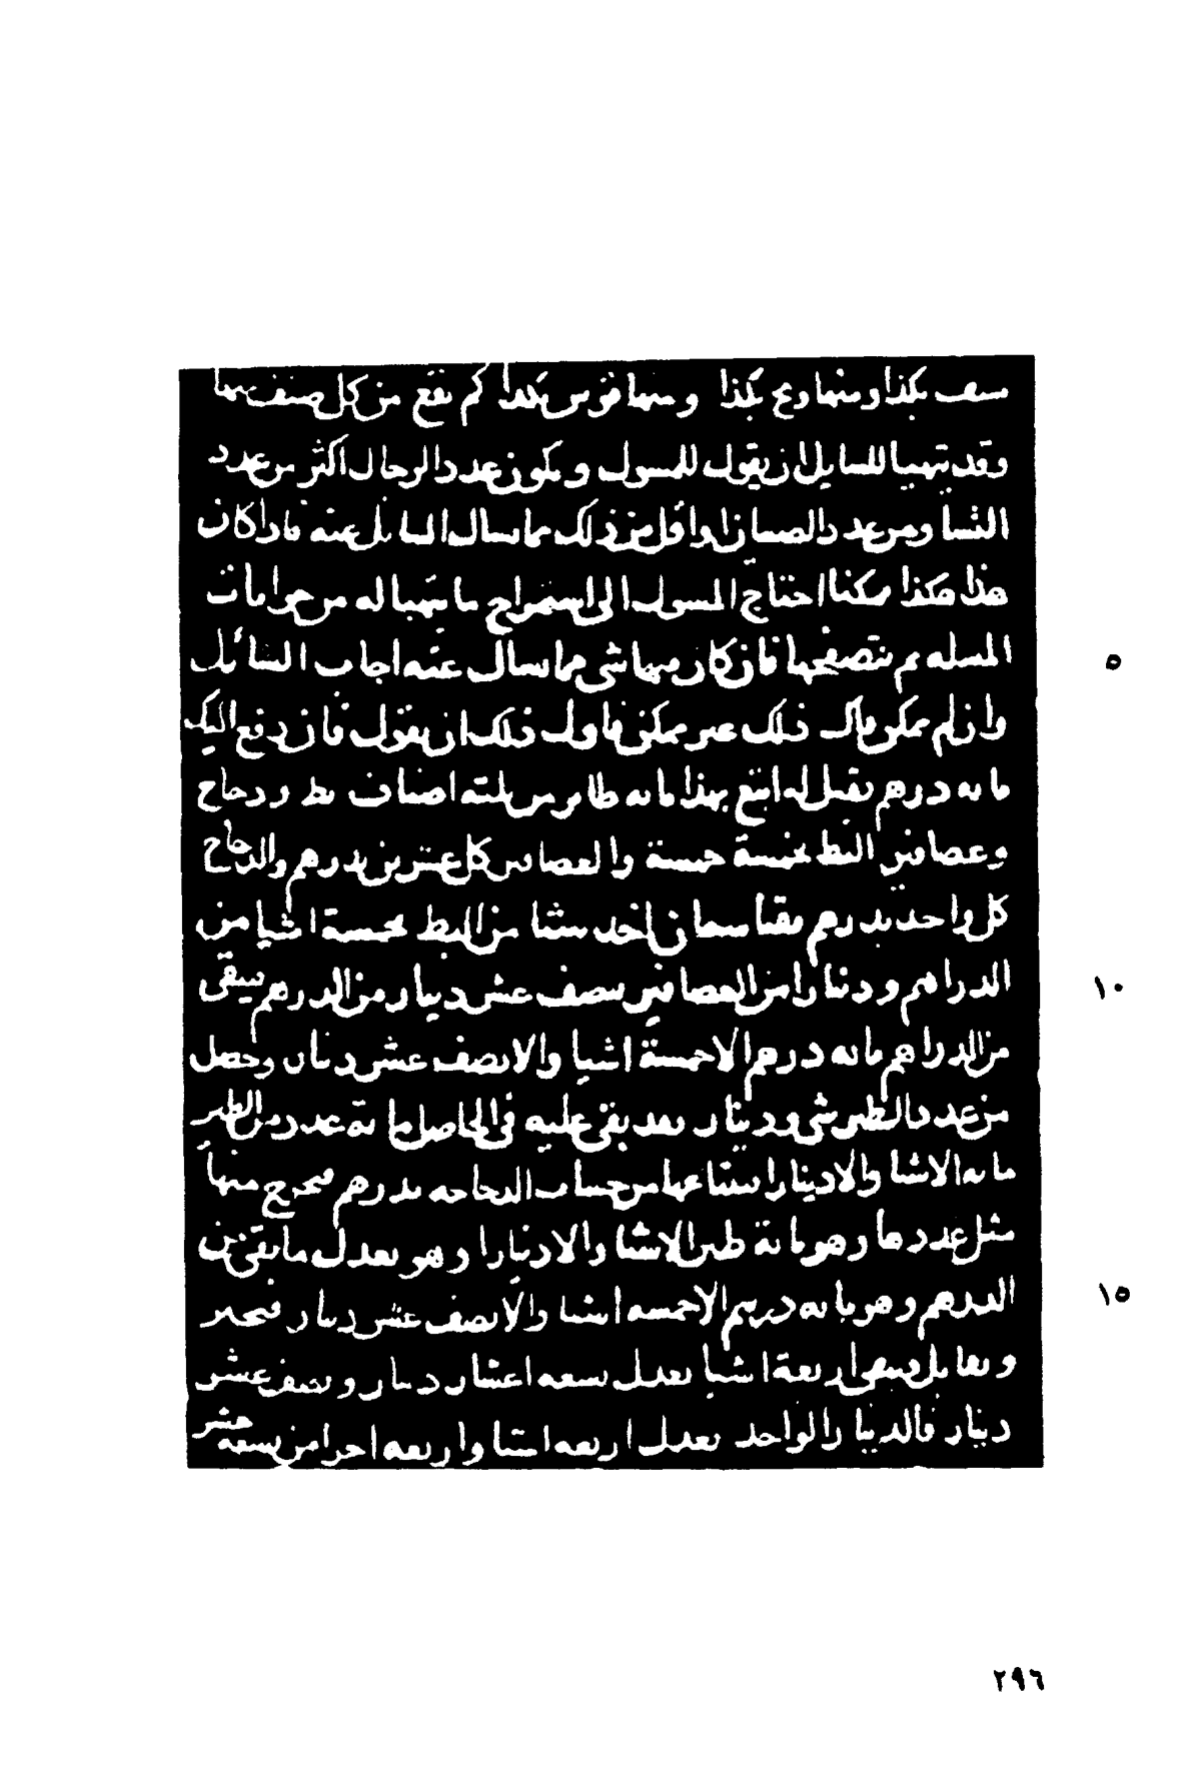 سيف بكذا ومنها رمح بكذا ومنها قوس بكذا كم يقع من كل صنف منها
وقد يتهيا للسايل ان يقول للمسول ويكون عدد الرجال اكثر من عدد
النسآ ومن عدد الصبيان او اقل من ذلك مما يسال السايل عنه فاذا كان
هذا هكذا ممكنا احتاج المسول الى استخراج ما يتهيا له من جوابات
المسله ثم يتصفحها فان كان فيها شى مما يسال عنه اجاب السائل
٥
وان لم يمكن قال ذلك غير ممكن فاول ذلك ان يقول فان دفع اليك
مايه درهم فقيل له ابتع بهذا مايه طاير من ثلثه اصناف بط ودجاج
وعصافير البط بخمسة خمسة والعصافير كل عشرين بدرهم والدجاج
كل واحد بدرهم فقياسها ان اخذ شيا من البط بخمسة اشيا من
الدراهم ودينارا من العصافير بنصف عشر دينار من الدرهم فيبقى
١٠
من الدراهم مايه درهم الا خمسة اشيا والا نصف عشر دينار وحصل
من عدد الطير شى ودينار بعد بقى عليه فى الحاصل ماية عدد من الطير
مايه الا شيا والا دينارا يبتاعها من حساب الدجاجه بدرهم فيخرج منها
مثل عددها وهو ماية طير الا شيا والا دينارا وهو يعدل ما بقى من
الدرهم وهو مايه درهم الا خمسه اشيا والا نصف عشر دينار فيجبر
١٥
ويقابل فيبقى اربعة اشيا يعدل تسعه اعشار دينار ونصف عشر
دينار فالدينار الواحد يعدل اربعه اشيا واربعه اجزا من تسعه عشر
٢٩٦